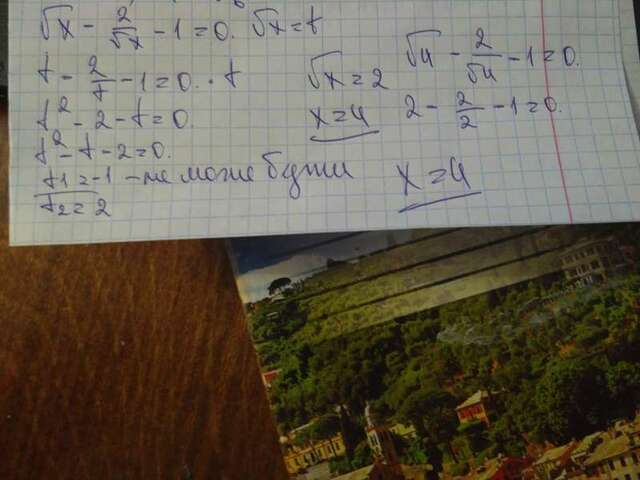 √x - 2/√x - 1 = 0. √x = t
t - 2/t - 1 = 0. · t
t² - 2 - t = 0.
t² - t - 2 = 0.
t1 = -1 - не може бути
t2 = 2
√x = 2
x = 4
√4 - 2/√4 - 1 = 0.
2 - 2/2 - 1 = 0.
x = 4